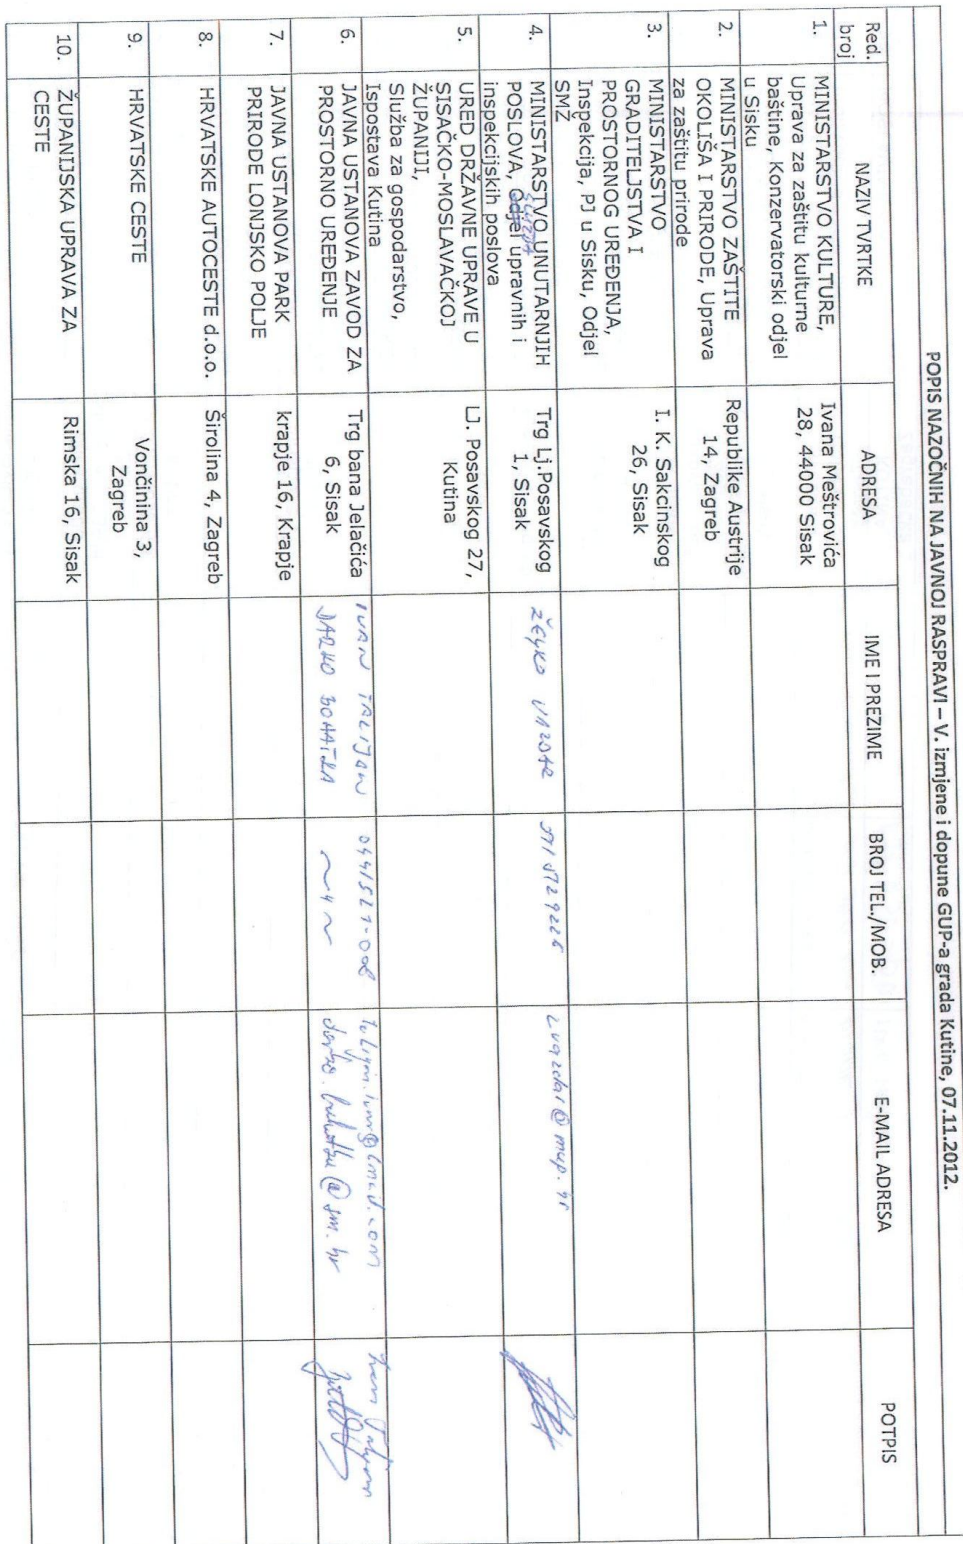 POPIS NAZOČNIH NA JAVNOJ RASPRAVI – V. izmjene i dopune GUP-a grada Kutine, 07.11.2012.
Red. broj
NAZIV TVRTKE
ADRESA
IME I PREZIME
BROJ TEL./MOB.
E-MAIL ADRESA
POTPIS
1.
MINISTARSTVO KULTURE,
Uprava za zaštitu kulturne
baštine, Konzervatorski odjel
u Sisku
Ivana Meštrovića
28, 44000 Sisak
2.
MINISTARSTVO ZAŠTITE
OKOLIŠA I PRIRODE, Uprava
za zaštitu prirode
Republike Austrije
14, Zagreb
3.
MINISTARSTVO
GRADITELJSTVA I
PROSTORNOG UREĐENJA,
Inspekcija, PJ u Sisku, Odjel
SMŽ
I. K. Sakcinskog
26, Sisak
4.
MINISTARSTVO UNUTARNJIH
POSLOVA, Odjel upravnih i
inspekcijskih poslova
Trg Lj.Posavskog
1, Sisak
5.
URED DRŽAVNE UPRAVE U
SISAČKO-MOSLAVAČKOJ
ŽUPANIJI,
Služba za gospodarstvo,
Ispostava Kutina
LJ. Posavskog 27,
Kutina
6.
JAVNA USTANOVA ZAVOD ZA
PROSTORNO UREĐENJE
Trg bana Jelačića
6, Sisak
IVAN TALIJAN
DARKO
7.
JAVNA USTANOVA PARK
PRIRODE LONJSKO POLJE
krapje 16, Krapje
8.
HRVATSKE AUTOCESTE d.o.o.
Širolina 4, Zagreb
9.
HRVATSKE CESTE
Vončinina 3,
Zagreb
10.
ŽUPANIJSKA UPRAVA ZA
CESTE
Rimska 16, Sisak